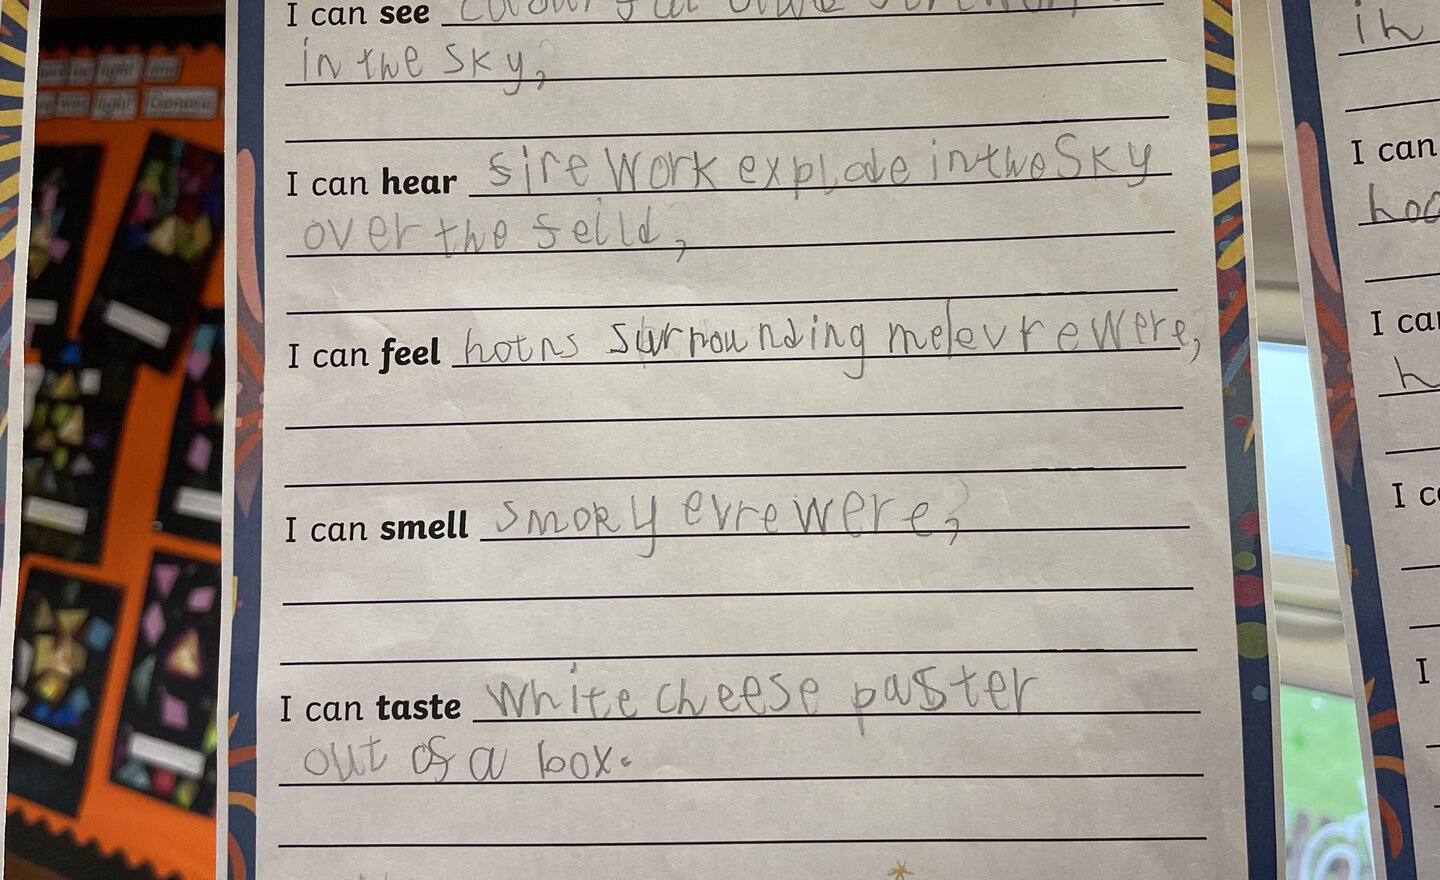 I can see
in the sky,
I can hear sire work explode in the sky
over the seild,
I can feel hotns surrounding me evrewere,
I can smell smoky evrewere,
I can taste white cheese paster
out of a box.
light and
light Genesis
in
I can
hoo
I ca
h
I c
I